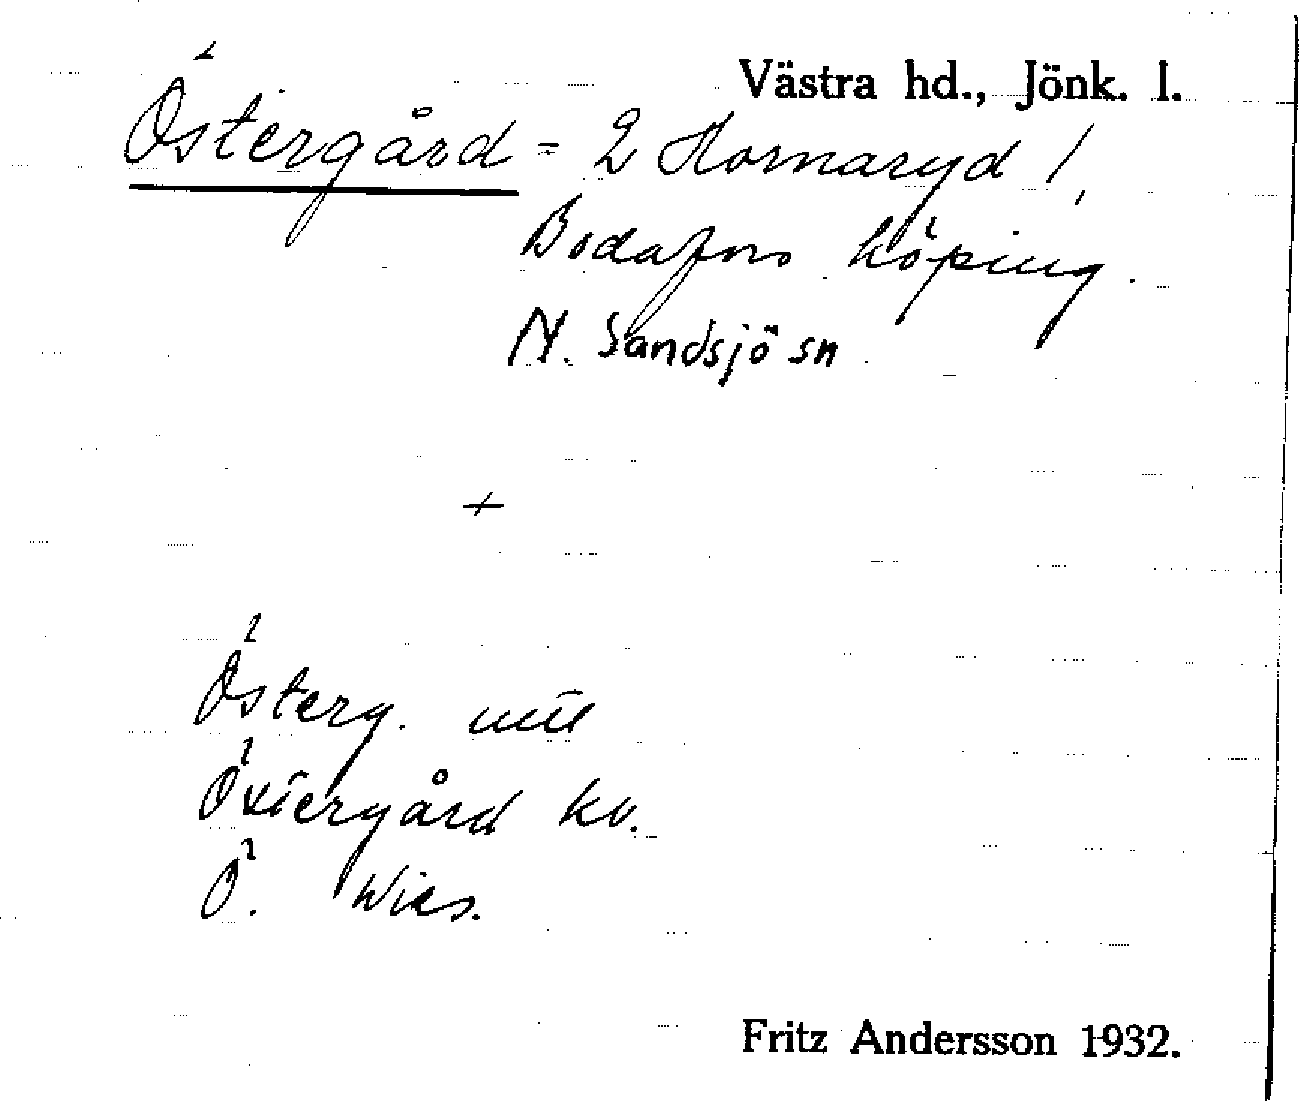 Västra hd., Jönk. l.
Östergård = 2 Hornaryd 1,
Bodafors köping.
N. Sandsjö sn
+
Österg. utt
Östergård kv.
Ö. Wies.
Fritz Andersson 1932.